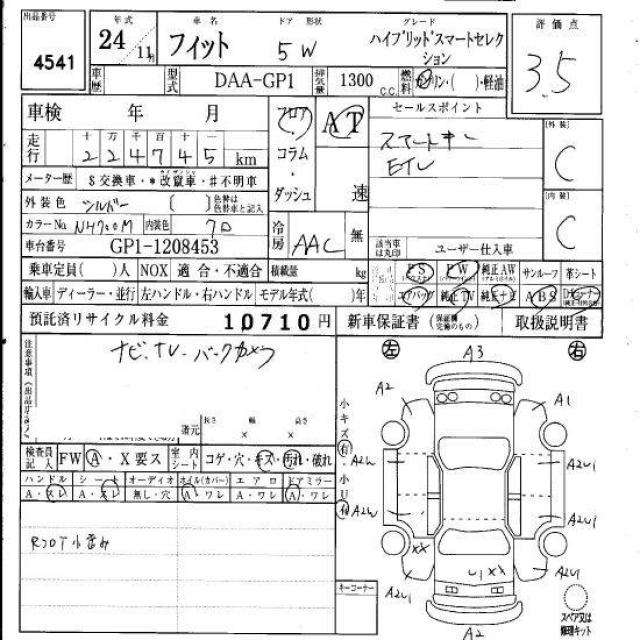 出品番号 年式 車名 ドア 形状 グレード 評価点
4541 24 11月 フィット 5W ハイブリッドスマートセレクション 3.5
車歴 型式 DAA-GP1 排気量 1300 C.C. 燃料 ガソリン・( )・軽油
車検 年 月 フロア AT セールスポイント [外装]
走行 十 万 千 百 十 一 コラム・ スマートキー C
2 2 4 7 4 5 km ETC
メーター歴 $交換車・*改竄車・#不明車 ダッシュ 速 [内装]
外装色 シルバー ( ) 色替は色替車と記入 C
カラーNo N4700M 内装色 70 冷房 AAC 無
車台番号 GP1-1208453 該当車は丸印 ユーザー仕入車
乗車定員( )人 NOX 適合・不適合 積載量 kg PS PW 純正AW サンルーフ 革シート
輸入車 ディーラー・並行 左ハンドル・右ハンドル モデル年式( )年 エアバッグ 純正TV 純正ナビ ABS
預託済リサイクル料金 10710円 新車保証書(保証欄完備のもの) 取扱説明書
注意事項 ナビ.TV.バックカメラ 左 A3 右
A2 A1
小キズ有 A2U1
長さ 幅 高さ
還元 × ×
小U有
検査員記入 FW A・X要ス 室内シート コゲ・穴・キズ・汚れ・破れ
ハンドル シート オーディオ ホイル(カバー) エアロ ドアミラー A2U1
A・スレ A・スレ 無し・穴 A・ワレ A・ワレ A・ワレ
XX
Rフロア小歪み
U1 XX A2U1
キーコーナー
A2 スペア又は修理キット